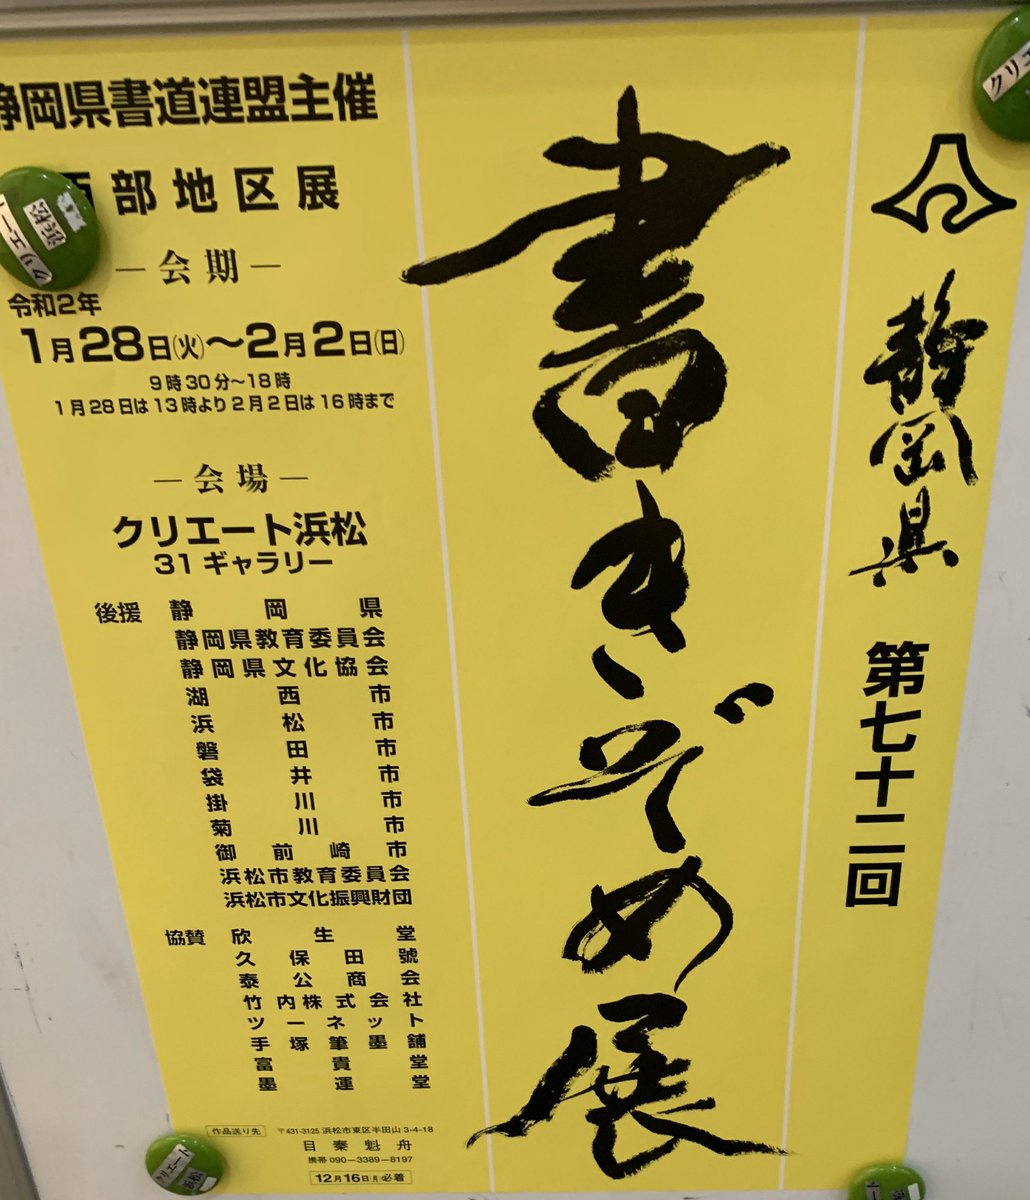 静岡県
第七十二回
書きぞめ展
静岡県書道連盟主催
西部地区展
―会期―
令和2年
1月28日(火)～2月2日(日)
9時30分～18時
1月28日は13時より2月2日は16時まで
―会場―
クリエート浜松
31ギャラリー
後援 静岡県
静岡県教育委員会
静岡県文化協会
湖西市
浜松市
磐田市
袋井市
掛川市
菊川市
御前崎市
浜松市教育委員会
浜松市文化振興財団
協賛 欣生堂
久保田號
泰公商会
竹内株式会社
ツーネット
手塚筆墨舗
富貴堂
墨運堂
作品送り先 〒431-3125 浜松市東区半田山3-4-18
目秦魁舟
携帯 090-3389-8197
12月16日(月)必着
クリエート
浜松
クリエ
クリエート
浜松